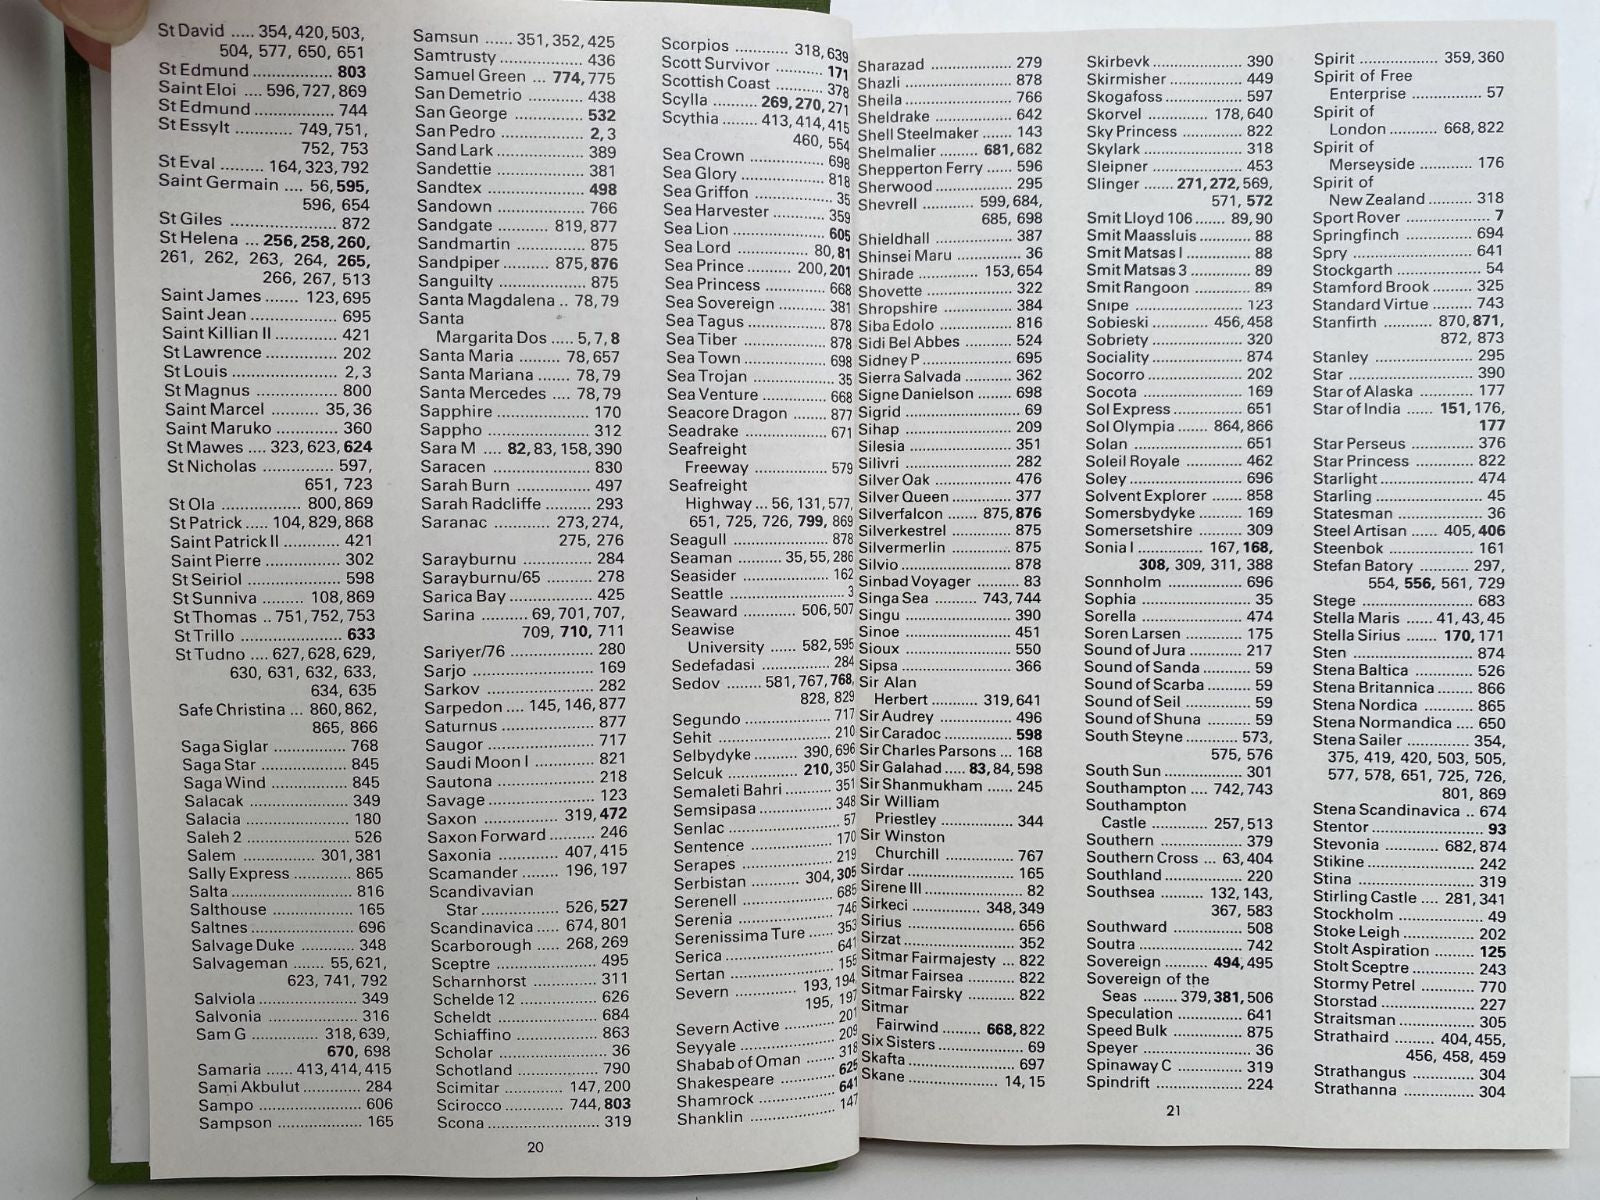 St David ..... 354, 420, 503,
504, 577, 650, 651
St Edmund ................ 803
Saint Eloi .... 596, 727, 869
St Edmund ................ 744
St Essylt ............ 749, 751,
752, 753
St Eval ......... 164, 323, 792
Saint Germain .... 56, 595,
596, 654
St Giles ..................... 872
St Helena ... 256, 258, 260,
261, 262, 263, 264, 265,
266, 267, 513
Saint James ....... 123, 695
Saint Jean ................ 695
Saint Killian II ............. 421
St Lawrence .............. 202
St Louis ..................... 2, 3
St Magnus ................ 800
Saint Marcel .......... 35, 36
Saint Maruko ............ 360
St Mawes .... 323, 623, 624
St Nicholas .......... 597,
651, 723
St Ola .................. 800, 869
St Patrick ..... 104, 829, 868
Saint Patrick II ............ 421
Saint Pierre ............... 302
St Seiriol ................... 598
St Sunniva ......... 108, 869
St Thomas .. 751, 752, 753
St Trillo ..................... 633
St Tudno .... 627, 628, 629,
630, 631, 632, 633,
634, 635
Safe Christina ... 860, 862,
865, 866
Saga Siglar ............... 768
Saga Star ................. 845
Saga Wind ............... 845
Salacak .................... 349
Salacia ..................... 180
Saleh 2 ..................... 526
Salem ................ 301, 381
Sally Express ............ 865
Salta ........................ 816
Salthouse ................. 165
Saltnes .................... 696
Salvage Duke ........... 348
Salvageman ....... 55, 621,
623, 741, 792
Salviola .................... 349
Salvonia .................. 316
Sam G ............. 318, 639,
670, 698
Samaria ...... 413, 414, 415
Sami Akbulut ............ 284
Sampo ..................... 606
Sampson .................. 165
Samsun ...... 351, 352, 425
Samtrusty ................ 436
Samuel Green ... 774, 775
San Demetrio ........... 438
San George .............. 532
San Pedro ................ 2, 3
Sand Lark ................ 389
Sandettie ................. 381
Sandtex ................... 498
Sandown ................. 766
Sandgate ........... 819, 877
Sandmartin .............. 875
Sandpiper .......... 875, 876
Sanguilty ................. 875
Santa Magdalena .. 78, 79
Santa
Margarita Dos ..... 5, 7, 8
Santa Maria ........ 78, 657
Santa Mariana ....... 78, 79
Santa Mercedes .... 78, 79
Sapphire .................. 170
Sappho .................... 312
Sara M .... 82, 83, 158, 390
Saracen ................... 830
Sarah Burn ............... 497
Sarah Radcliffe .......... 293
Saranac ............ 273, 274,
275, 276
Sarayburnu .............. 284
Sarayburnu/65 ......... 278
Sarica Bay ................ 425
Sarina .......... 69, 701, 707,
709, 710, 711
Sariyer/76 ................ 280
Sarjo ........................ 169
Sarkov ..................... 282
Sarpedon .... 145, 146, 877
Saturnus .................. 877
Saugor ..................... 717
Saudi Moon I ............ 821
Sautona ................... 218
Savage ..................... 123
Saxon ................ 319, 472
Saxon Forward ......... 246
Saxonia ............. 407, 415
Scamander ........ 196, 197
Scandivavian
Star .................. 526, 527
Scandinavica ..... 674, 801
Scarborough ..... 268, 269
Sceptre .................... 495
Scharnhorst ............. 311
Schelde 12 ............... 626
Scheldt .................... 684
Schiaffino ................ 863
Scholar .................... 36
Schotland ................ 790
Scimitar ............ 147, 200
Scirocco ............ 744, 803
Scona ...................... 319
Scorpios ............ 318, 639
Scott Survivor .......... 171
Scottish Coast .......... 378
Scylla ......... 269, 270, 271
Scythia ....... 413, 414, 415
460, 554
Sea Crown ............... 698
Sea Glory ................. 818
Sea Griffon ............... 35
Sea Harvester ........... 359
Sea Lion ................... 605
Sea Lord .............. 80, 81
Sea Prince .......... 200, 201
Sea Princess ............. 668
Sea Sovereign .......... 381
Sea Tagus ................ 878
Sea Tiber ................. 878
Sea Town ................. 698
Sea Trojan ................ 35
Sea Venture .............. 668
Seacore Dragon ....... 877
Seadrake ................. 671
Seafreight
Freeway ............... 579
Seafreight
Highway ... 56, 131, 577,
651, 725, 726, 799, 869
Seagull .................... 878
Seaman .......... 35, 55, 286
Seasider .................. 162
Seattle ..................... 3
Seaward ............ 506, 507
Seawise
University ...... 582, 595
Sedefadasi ............... 284
Sedov ........ 581, 767, 768,
828, 829
Segundo .................. 717
Sehit ........................ 210
Selbydyke .......... 390, 696
Selcuk ................ 210, 350
Semaleti Bahri .......... 351
Semsipasa ............... 348
Senlac ..................... 57
Sentence ................. 170
Serapes ................... 219
Serbistan ........... 304, 305
Serenell ................... 685
Serenia .................... 746
Serenissima Ture ..... 353
Serica ...................... 641
Sertan ..................... 155
Severn .............. 193, 194
195, 197
Severn Active ........... 201
Seyyale .................... 209
Shabab of Oman ...... 318
Shakespeare ............ 625
Shamrock ................ 641
Shanklin .................. 147
20
Sharazad .................. 279
Shazli ...................... 878
Sheila ...................... 766
Sheldrake ................ 642
Shell Steelmaker ...... 143
Shelmalier ......... 681, 682
Shepperton Ferry ..... 596
Sherwood ................ 295
Shevrell ............ 599, 684,
685, 698
Shieldhall ................. 387
Shinsei Maru ............ 36
Shirade ............. 153, 654
Shovette .................. 322
Shropshire ............... 384
Siba Edolo ................ 816
Sidi Bel Abbes .......... 524
Sidney P .................. 695
Sierra Salvada .......... 362
Signe Danielson ....... 698
Sigrid ....................... 69
Sihap ....................... 209
Silesia ...................... 351
Silivri ....................... 282
Silver Oak ................ 476
Silver Queen ............ 377
Silverfalcon ........ 875, 876
Silverkestrel ............. 875
Silvermerlin .............. 875
Silvio ....................... 878
Sinbad Voyager ........ 83
Singa Sea .......... 743, 744
Singu ....................... 390
Sinoe ....................... 451
Sioux ....................... 550
Sipsa ....................... 366
Sir Alan
Herbert ........... 319, 641
Sir Audrey ................ 496
Sir Caradoc .............. 598
Sir Charles Parsons ... 168
Sir Galahad ..... 83, 84, 598
Sir Shanmukham ...... 245
Sir William
Priestley ............... 344
Sir Winston
Churchill .............. 767
Sirdar ...................... 165
Sirene III .................. 82
Sirkeci ............... 348, 349
Sirius ....................... 656
Sirzat ....................... 352
Sitmar Fairmajesty .. 822
Sitmar Fairsea .......... 822
Sitmar Fairsky .......... 822
Sitmar
Fairwind ......... 668, 822
Six Sisters ................ 69
Skafta ...................... 697
Skane .................... 14, 15
Skirbevk .................. 390
Skirmisher ............... 449
Skogafoss ................ 597
Skorvel .............. 178, 640
Sky Princess ............. 822
Skylark .................... 318
Sleipner ................... 453
Slinger ...... 271, 272, 569,
571, 572
Smit Lloyd 106 ...... 89, 90
Smit Maassluis ......... 88
Smit Matsas I ............ 88
Smit Matsas 3 ........... 89
Smit Rangoon .......... 89
Snipe ....................... 123
Sobieski ............ 456, 458
Sobriety ................... 320
Sociality .................. 874
Socorro ................... 202
Socota ..................... 169
Sol Express .............. 651
Sol Olympia ...... 864, 866
Solan ....................... 651
Soleil Royale ............ 462
Soley ....................... 696
Solvent Explorer ...... 858
Somersbydyke ......... 169
Somersetshire .......... 309
Sonia I .............. 167, 168,
308, 309, 311, 388
Sonnholm ................ 696
Sophia ..................... 35
Sorella ..................... 474
Soren Larsen ............ 175
Sound of Jura ........... 217
Sound of Sanda ........ 59
Sound of Scarba ....... 59
Sound of Seil ............ 59
Sound of Shuna ........ 59
South Steyne ....... 573,
575, 576
South Sun ................ 301
Southampton .... 742, 743
Southampton
Castle ............ 257, 513
Southern .................. 379
Southern Cross ... 63, 404
Southland ................ 220
Southsea ........ 132, 143,
367, 583
Southward ............... 508
Soutra ..................... 742
Sovereign .......... 494, 495
Sovereign of the
Seas ....... 379, 381, 506
Speculation .............. 641
Speed Bulk ............... 875
Speyer ..................... 36
Spinaway C .............. 319
Spindrift .................. 224
21
Spirit .................. 359, 360
Spirit of Free
Enterprise ............ 57
Spirit of
London ........... 668, 822
Spirit of
Merseyside ........... 176
Spirit of
New Zealand ......... 318
Sport Rover .............. 7
Springfinch .............. 694
Spry ........................ 641
Stockgarth ............... 54
Stamford Brook ........ 325
Standard Virtue ........ 743
Stanfirth ........... 870, 871,
872, 873
Stanley .................... 295
Star ......................... 390
Star of Alaska ........... 177
Star of India ...... 151, 176,
177
Star Perseus ............. 376
Star Princess ............ 822
Starlight ................... 474
Starling .................... 45
Statesman ................ 36
Steel Artisan ...... 405, 406
Steenbok ................. 161
Stefan Batory .......... 297,
554, 556, 561, 729
Stege ....................... 683
Stella Maris ...... 41, 43, 45
Stella Sirius ....... 170, 171
Sten ........................ 874
Stena Baltica ............ 526
Stena Britannica ....... 866
Stena Nordica .......... 865
Stena Normandica ... 650
Stena Sailer ............. 354,
375, 419, 420, 503, 505,
577, 578, 651, 725, 726,
801, 869
Stena Scandinavica .. 674
Stentor .................... 93
Stevonia ............ 682, 874
Stikine ..................... 242
Stina ....................... 319
Stirling Castle .... 281, 341
Stockholm ............... 49
Stoke Leigh .............. 202
Stolt Aspiration ........ 125
Stolt Sceptre ............ 243
Stormy Petrel ........... 770
Storstad .................. 227
Straitsman ............... 305
Strathaird ......... 404, 455,
456, 458, 459
Strathangus ............. 304
Strathanna ............... 304